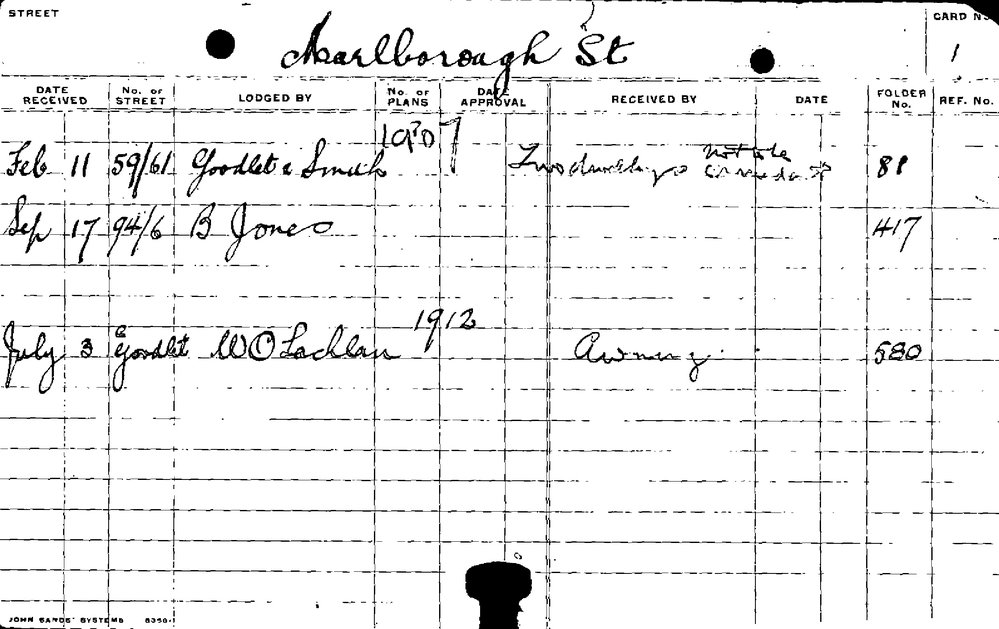 STREET
CARD No.
Marlborough St
1
DATE RECEIVED No. of STREET LODGED BY No. of PLANS DATE APPROVAL RECEIVED BY DATE FOLDER No. REF. No.
1907
Feb 11 59/61 Goodlet & Smith Two dwellings not to be 81
Sep 17 94/6 B Jones 417
1912
July 3 Goodlet W O Lachlan Awning 580
JOHN SANDS' SYSTEMS